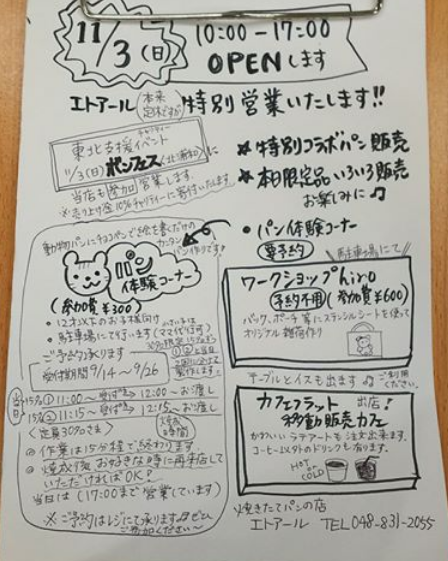 11/3(日)
10:00-17:00
OPENします
エトアール 本来定休ですが 特別営業いたします!!
チャリティー
東北支援イベント
11/3(日) ポンフェス(北浦和)に
当店も参加営業します
※売り上げ金10%チャリティーに寄付いたします
★特別コラボパン販売
★本日限定品いろいろ販売
お楽しみに♫
・パン体験コーナー
要予約
駐車場にて
動物パンにチョコペンで絵を書くだけの
カンタンパン作りです!
パン
体験コーナー
(参加費¥300)
・12才以下のお子様向け
・駐車場にて行います(ママ代行可)
ご予約承ります
受付期間9/14〜9/26
当日
15名① 11:00〜受付 12:00〜お渡し
15名② 11:15〜受付 12:15〜お渡し
<定員30名さま>
焼成1時間
◎作業は15分程で終わります
◎焼成後お好きな時に再来店して
いただければOK!
当日は(17:00まで営業しています)
※ご予約はレジにて承ります♫ぜひ
ご参加ください〜
ワークショップhiro
予約不用(参加費¥600)
バッグ、ポーチ等にステンシルシートを使って
オリジナル雑貨作り
テーブルとイスも出ます♫ご利用ください。
カフェフラット 出店!
移動販売カフェ
かわいいラテアートも注文出来ます
コーヒー以外のドリンクも有ります。
HOT or COLD
焼きたてパンの店
エトアール TEL 048-831-2055